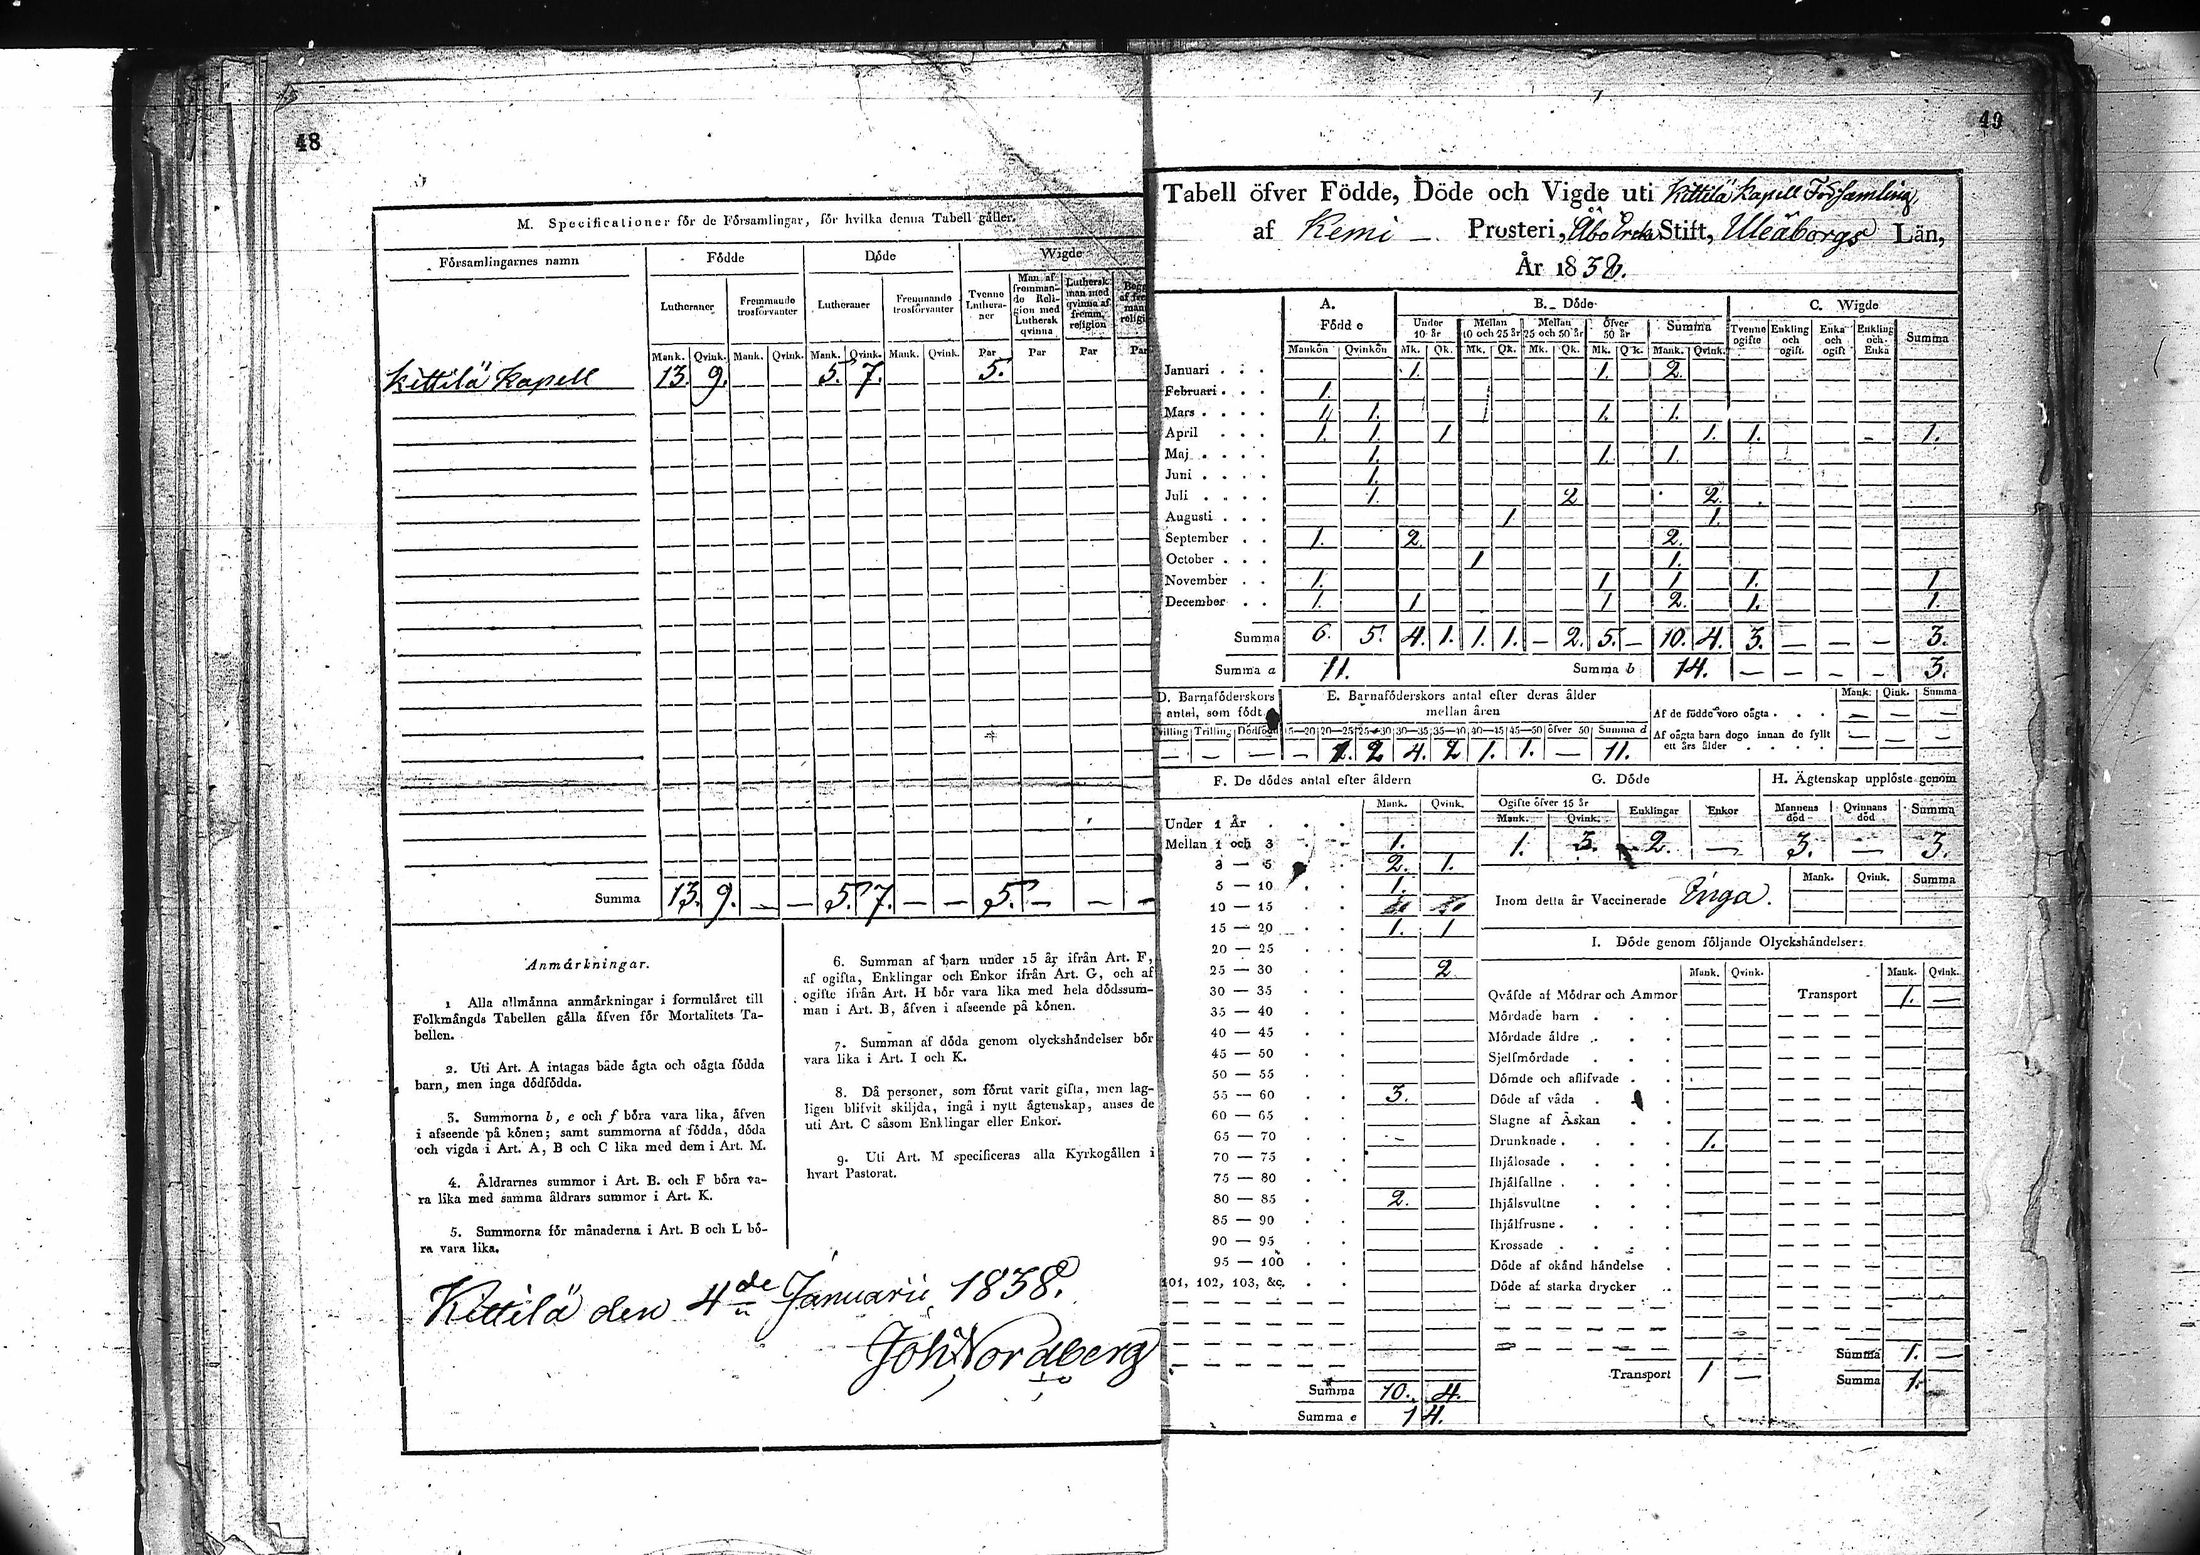 48
M. Specificationer för de Församlingar, för hvilka denna Tabell gäller.
Församlingarnes namn Födde Döde Wigde
Lutheraner Fremmande trosförvanter Lutheraner Fremmande trosförvanter Tvenne Lutheraner Man af fremmande Religion med Luthersk qvinna Luthersk man med qvinna af fremm. religion
Mank. Qvink. Mank. Qvink. Mank. Qvink. Mank. Qvink. Par Par Par Par
Kittilä Kapell 13. 9. 5. 7. 5.
Summa 13. 9. — — 5. 7. — — 5. — — —
Anmärkningar.
1 Alla allmänna anmärkningar i formuläret till
Folkmängds Tabellen gälla äfven för Mortalitets Ta-
bellen.
2. Uti Art. A intagas både ägta och oägta födda
barn, men inga dödfödda.
3. Summorna b, e och f böra vara lika, äfven
i afseende på könen; samt summorna af födda, döda
och vigda i Art. A, B och C lika med dem i Art. M.
4. Åldrarnes summor i Art. B. och F böra va-
ra lika med samma åldrars summor i Art. K.
5. Summorna för månaderna i Art. B och L bö-
ra vara lika.
6. Summan af barn under 15 år ifrån Art. F,
af ogifta, Enklingar och Enkor ifrån Art. G, och af
ogifte ifrån Art. H bör vara lika med hela dödssum-
man i Art. B, äfven i afseende på könen.
7. Summan af döda genom olyckshändelser bör
vara lika i Art. I och K.
8. Då personer, som förut varit gifta, men lag-
ligen blifvit skiljda, ingå i nytt ägtenskap, anses de
uti Art. C såsom Enklingar eller Enkor.
9. Uti Art. M specificeras alla Kyrkogällen i
hvart Pastorat.
Kittilä den 4de Januarii 1838.
Joh. Nordberg
49
Tabell öfver Födde, Döde och Vigde uti Kittilä Kapell Församling
af Kemi — Prosteri, Åbo Erke Stift, Uleåborgs Län,
År 1838.
A. Födde B. Döde C. Wigde
Under 10 år Mellan 10 och 25 år Mellan 25 och 50 år Öfver 50 år Summa Tvenne ogifte Enkling och ogift. Enka och ogift Enkling och Enka Summa
Mankön Qvinkön Mk. Qk. Mk. Qk. Mk. Qk. Mk. Qk. Mank. Qvink.
Januari . . . 1. 1. 2.
Februari . . . 1.
Mars . . . . 1. 1. 1. 1.
April . . . 1. 1. 1 1. 1. 1.
Maj . . . . 1. 1. 1.
Juni . . . . 1.
Juli . . . . 1. 2 2.
Augusti . . . 1. 1.
September . . 1. 2. 2.
October . . . 1 1.
November . . 1. 1 1 1. 1
December . . 1. 1 1 2. 1. 1.
Summa 6. 5. 4. 1. 1. 1. — 2. 5. — 10. 4. 3. — — — 3.
Summa a 11. Summa b 14. — — — — 3.
D. Barnaföderskors antal, som födt
Trilling Dödfödd
— — —
E. Barnaföderskors antal efter deras ålder
mellan åren
15—20 20—25 25—30 30—35 35—40 40—45 45—50 öfver 50 Summa d
— 1. 2 4. 2 1. 1. — 11.
Mank. Qink. Summa
Af de födde voro oägta . . . — — —
Af oägta barn dogo innan de fyllt
ett års ålder . . . . — — —
F. De dödes antal efter åldern
Mank. Qvink.
Under 1 År
Mellan 1 och 3 1.
3 — 5 2. 1.
5 — 10 1.
10 — 15
15 — 20 1. 1
20 — 25
25 — 30 2
30 — 35
35 — 40
40 — 45
45 — 50
50 — 55
55 — 60 3.
60 — 65
65 — 70
70 — 75
75 — 80
80 — 85 2.
85 — 90
90 — 95
95 — 100
101, 102, 103, &c.
Summa 10. 4.
Summa e 14.
G. Döde
Ogifte öfver 15 år Enklingar Enkor
Mank. Qvink.
1. 3. 2. —
H. Ägtenskap upplöste genom
Mannens död Qvinnans död Summa
3. — 3.
Mank. Qvink. Summa
Inom detta år Vaccinerade Inga.
I. Döde genom följande Olyckshändelser:
Mank. Qvink. Mank. Qvink.
Qväfde af Mödrar och Ammor Transport 1. —
Mördade barn
Mördade äldre
Sjelfmördade
Dömde och aflifvade
Döde af våda
Slagne af Åskan
Drunknade . 1.
Ihjälosade
Ihjälfallne
Ihjälsvultne
Ihjälfrusne
Krossade
Döde af okänd händelse
Döde af starka drycker
Summa 1. —
Transport 1 — Summa 1.